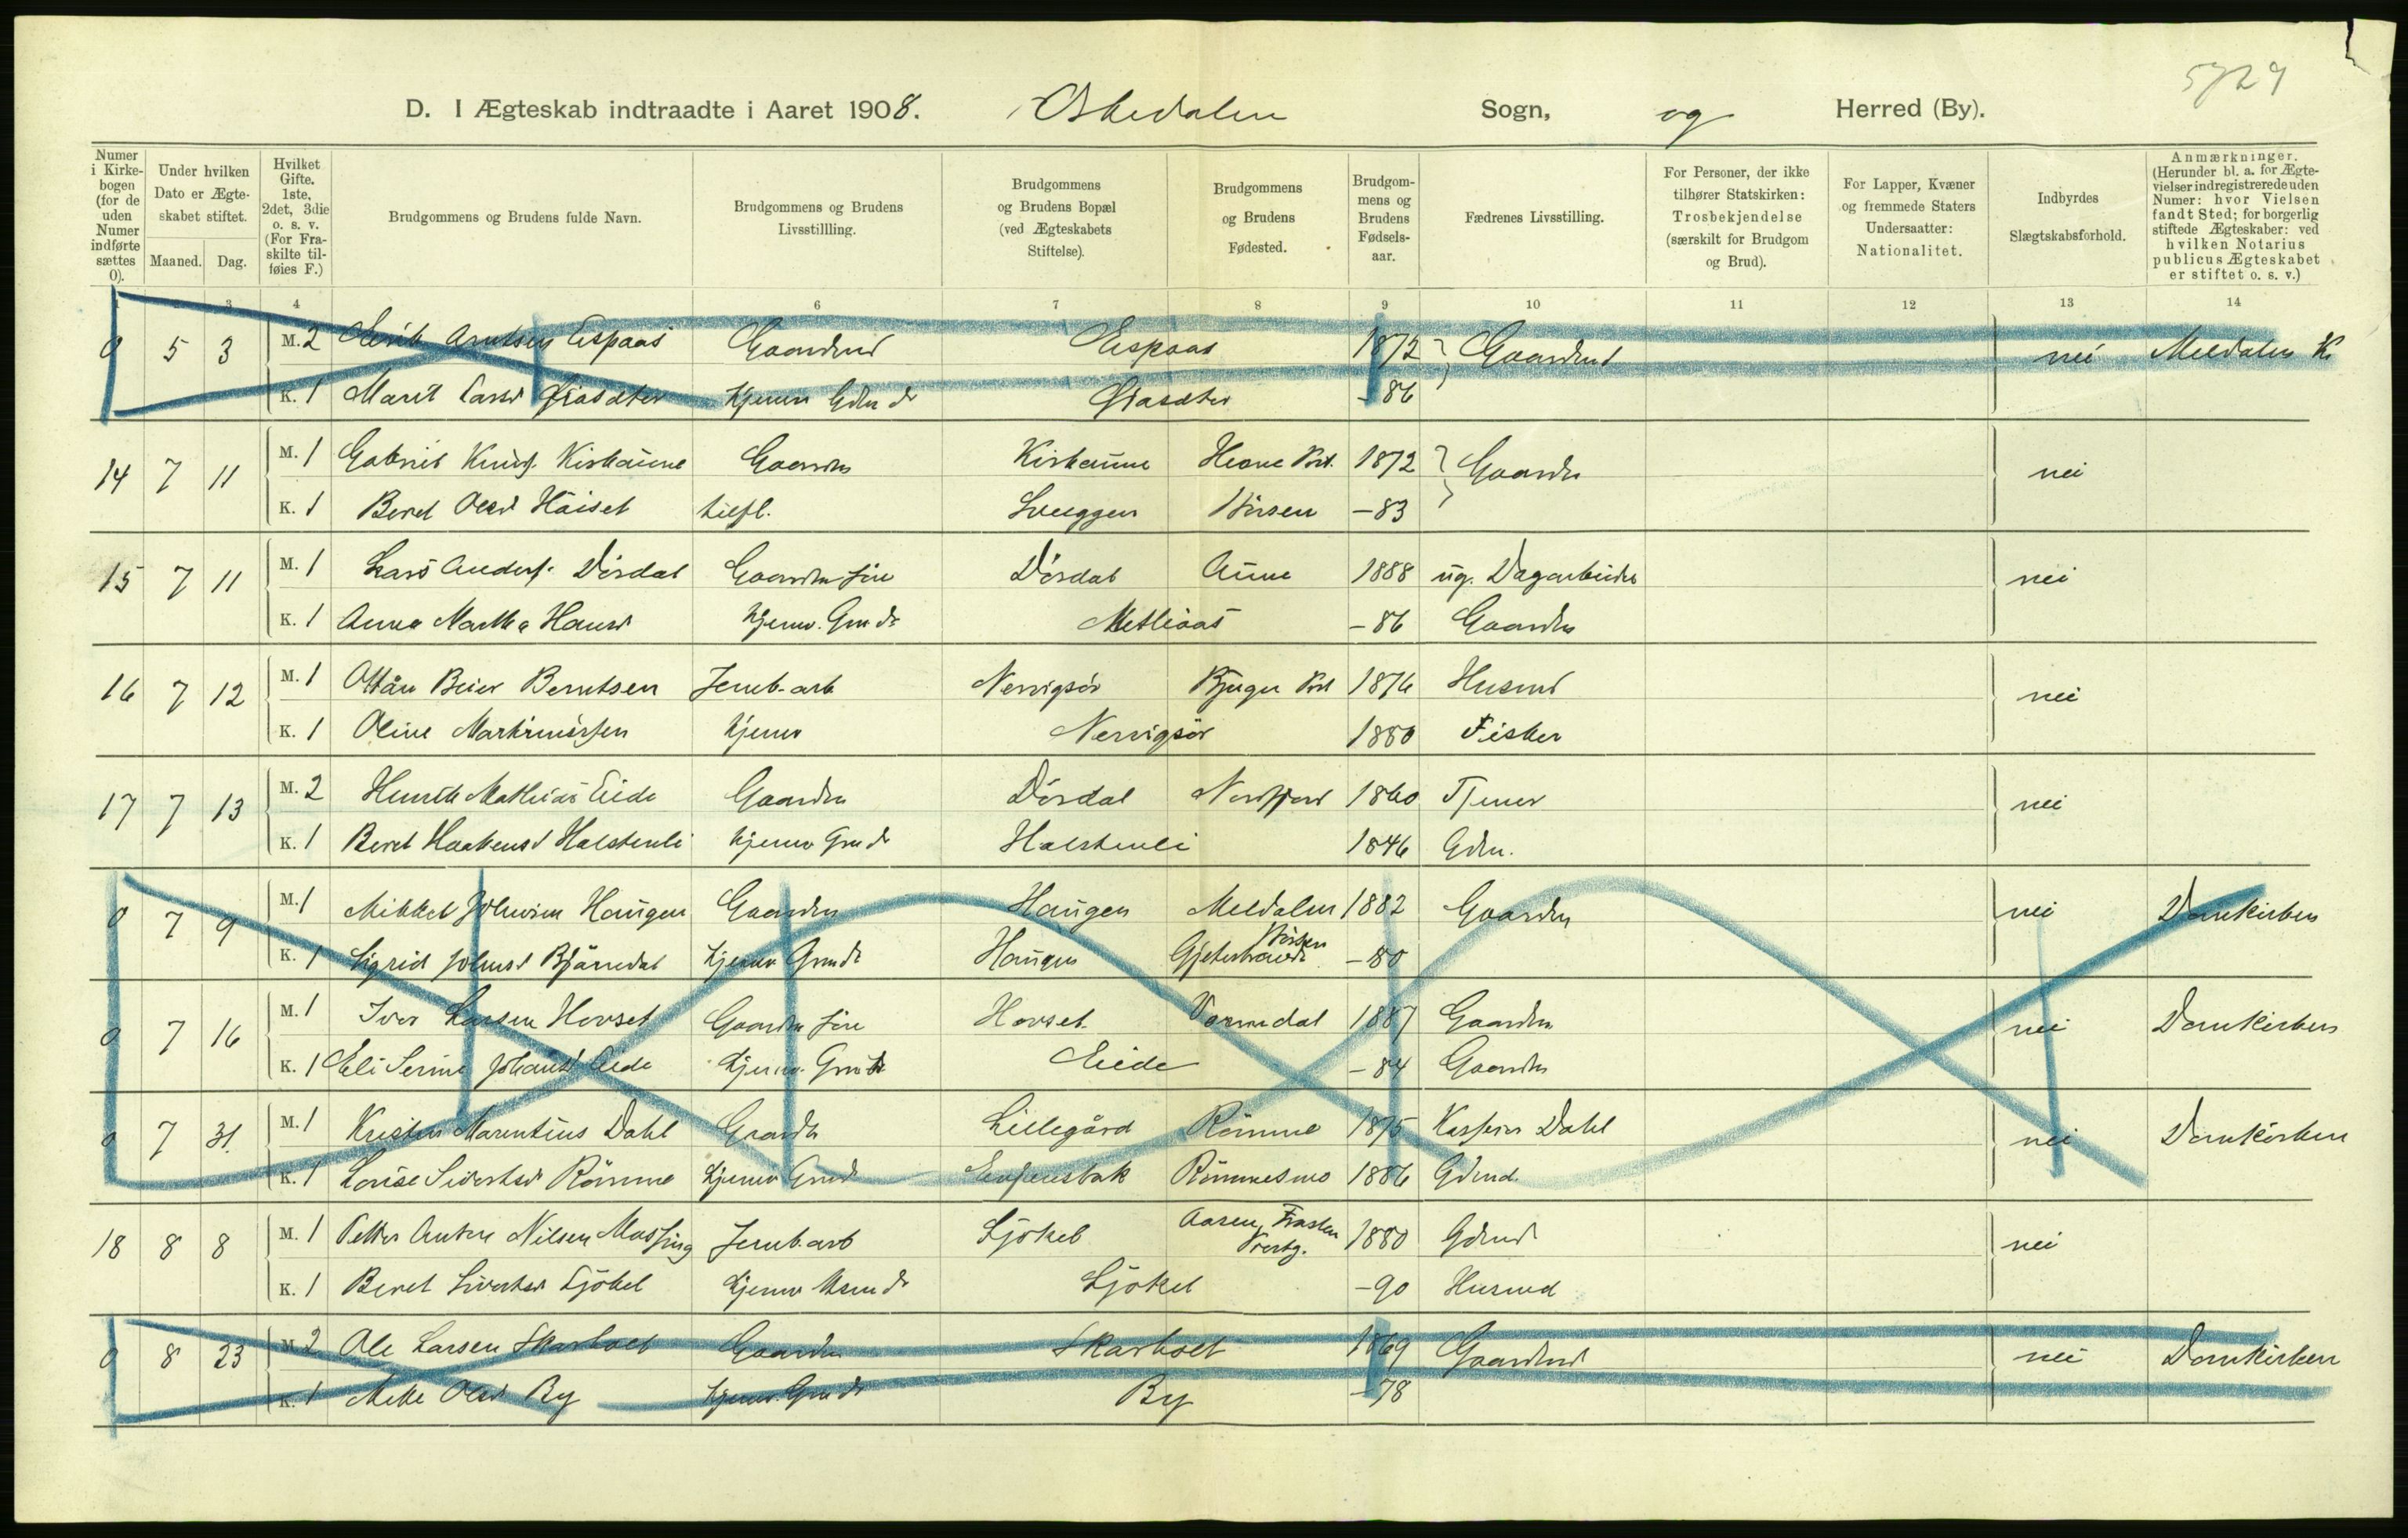 5727
D. I Ægteskab indtraadte i Aaret 1908. Orkedalen Sogn, og Herred (By).
Numer i Kirkebogen (for de uden Numer indførte sættes 0).
Under hvilken Dato er Ægteskabet stiftet.
Maaned. Dag.
Hvilket Gifte. 1ste, 2det, 3die o. s. v. (For Fraskilte tilføies F.)
Brudgommens og Brudens fulde Navn.
Brudgommens og Brudens Livsstillling.
Brudgommens og Brudens Bopæl (ved Ægteskabets Stiftelse).
Brudgommens og Brudens Fødested.
Brudgommens og Brudens Fødselsaar.
Fædrenes Livsstilling.
For Personer, der ikke tilhører Statskirken: Trosbekjendelse (særskilt for Brudgom og Brud).
For Lapper, Kvæner og fremmede Staters Undersaatter: Nationalitet.
Indbyrdes Slægtskabsforhold.
Anmærkninger. (Herunder bl. a. for Ægtevielser indregistrerede uden Numer: hvor Vielsen fandt Sted; for borgerlig stiftede Ægteskaber: ved hvilken Notarius publicus Ægteskabet er stiftet o. s. v.)
3 4 6 7 8 9 10 11 12 13 14
0 5 3 M. 2 Arntsen Espaas Gaardmd Espaas 1872 Gaardmd nei Meldalen K.
K. 1 Marit Larsd Hjemv Gdm d - 86
14 7 11 M. 1 Gabriel Knuts. Kirkaune Gaardm Kirkaune 1872 Gaardm nei
K. 1 Beret Olsd Höiset Börsen - 83
15 7 11 M. 1 Lars Anders. Dördal Gaardm Dördal Aune 1888 ug. Dagarbeider nei
K. 1 Anna Martha Hansd hjemv. Gmd Metliaas - 86 Gaardm
16 7 12 M. 1 Beier Berntsen Jernb. arb 1876 Husmd nei
K. 1 Oline hjemv 1880 Fisker
17 7 13 M. 2 Henrik Mathias Eide Gaardm Dördal Nordfjord 1860 Tjener nei
K. 1 Beret Haakensd Halstenli hjemv Gmd Halstenli 1846 Gdm.
0 7 9 M. 1 Mikkel Haugen Gaardm Haugen Meldalen 1882 Gaardm nei Domkirken
K. 1 Sigrid Johnsd Bjørndal hjemv Gmd Haugen Börsen - 80
0 7 16 M. 1 Iver Larsen Hovset Gaardm Hovset 1887 Gaardm nei Domkirken
K. 1 Eli Serine Johansd Eide hjemv. Gmd Eide - 84 Gaardm
0 7 31. M. 1 Marentius Dahl Lillegård Römme 1875 Dahl nei Domkirken
K. 1 Lovise Sivertsd Römme hjemv Gmd Römmesmo 1886 Gdmd.
18 8 8 M. 1 Petter Anton Nilsen Jernb. arb Ljökel Aasen 1880 Gdmd nei
K. 1 Beret Sivertsd Ljökel hjemv Ljökel - 90 Husmd
0 8 23 M. 2 Ole Larsen Skarholt Gaardm Skarholt 1869 Gaardmd nei Domkirken
K. 1 Mette Olsd By hjemv. Gmd By - 78